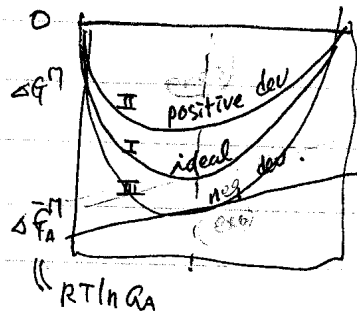 O
ΔG^M
II
positive dev
I
ideal
III
neg dev.
ΔG̅_A^M
RT ln a_A